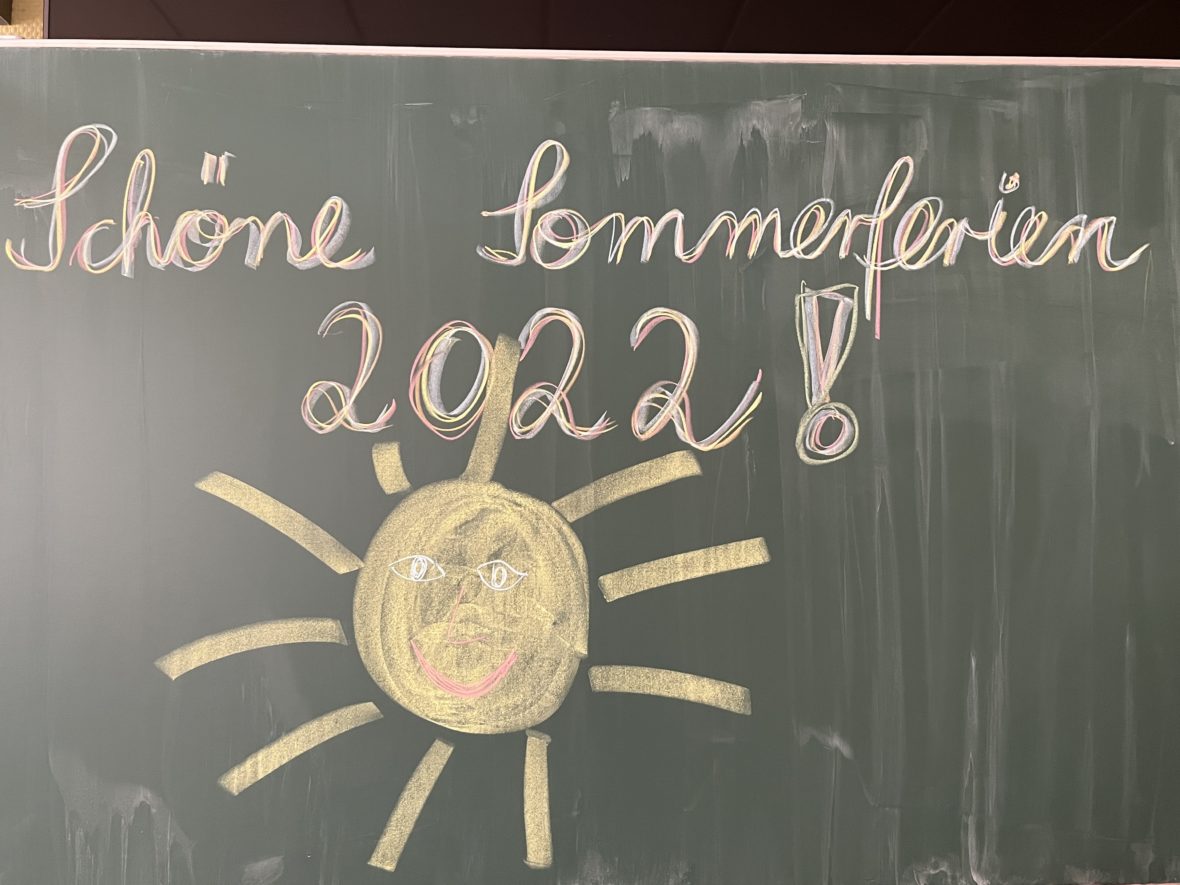 Schöne Sommerferien
2022!